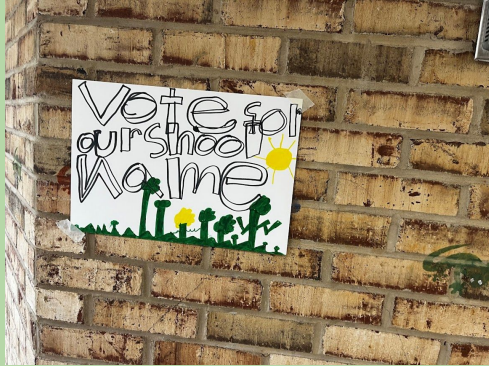 Vote for
our shool
Name